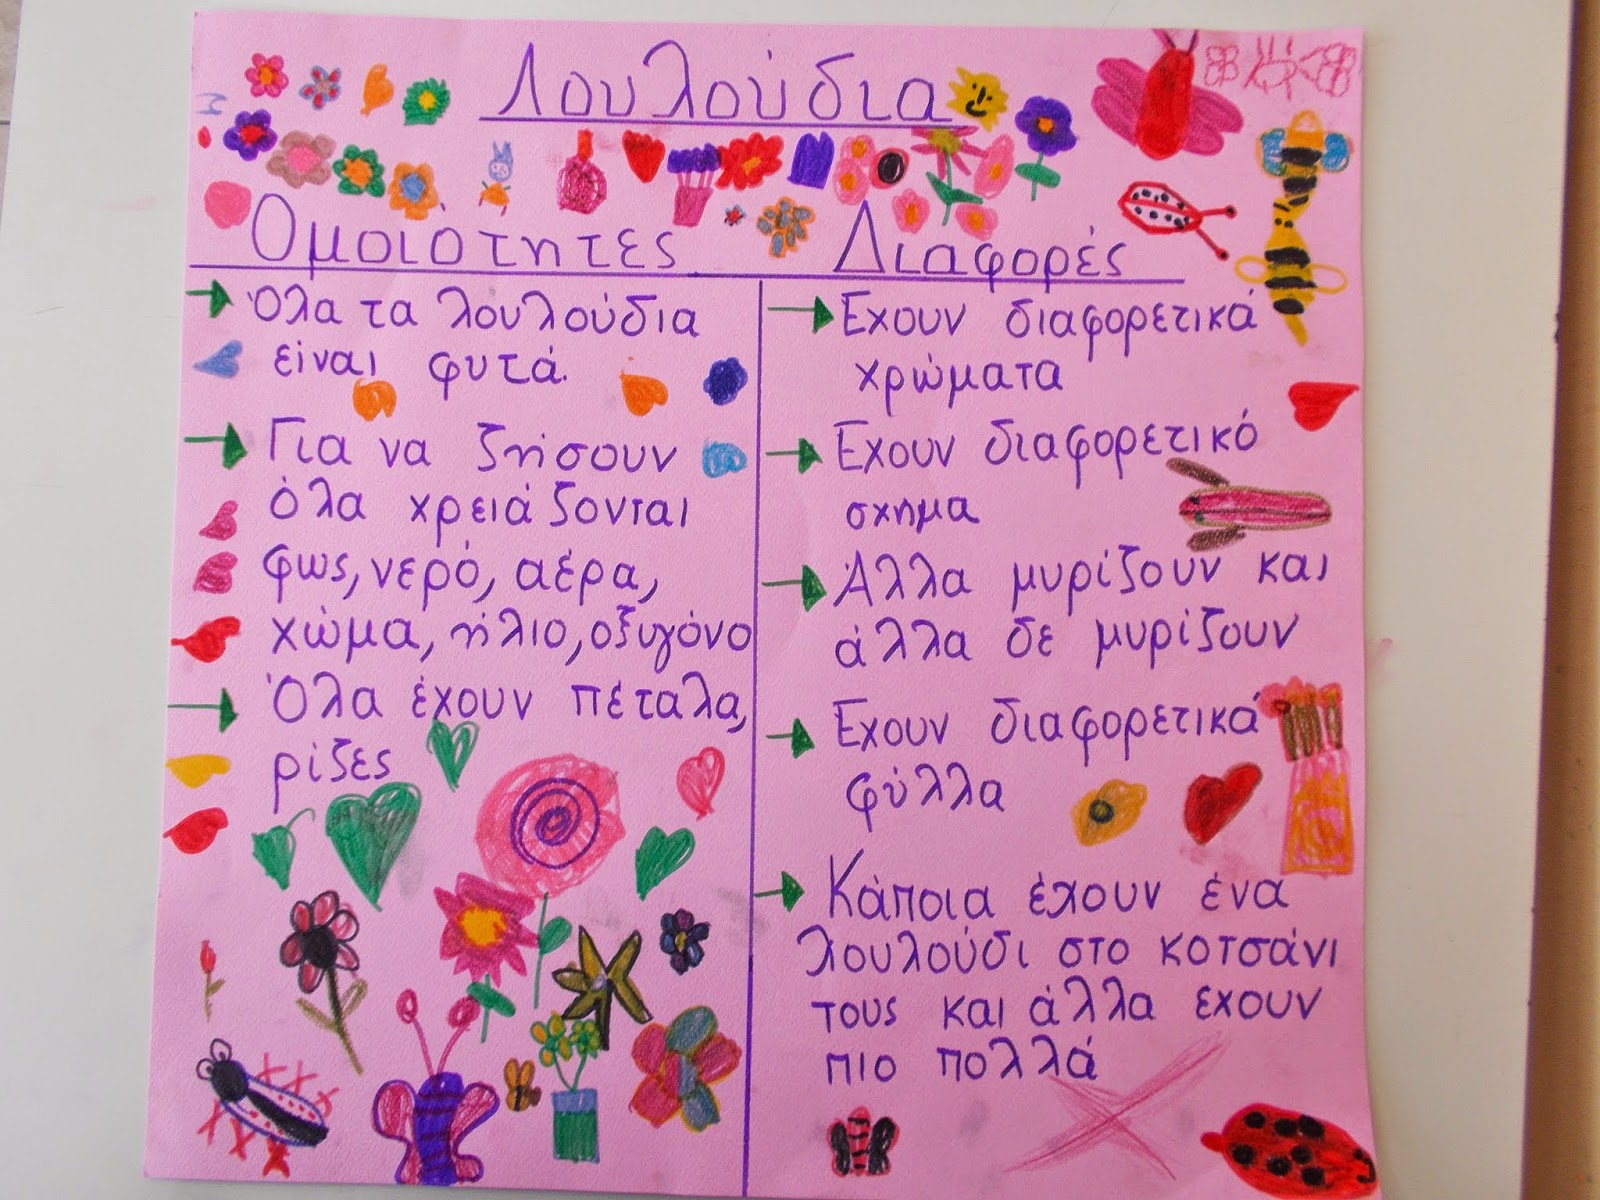 Λουλούδια
Ομοιότητες
Όλα τα λουλούδια
είναι φυτά.
Για να ζήσουν
όλα χρειάζονται
φως, νερό, αέρα,
χώμα, ήλιο, οξυγόνο
Όλα έχουν πέταλα,
ρίζες
Διαφορές
Έχουν διαφορετικά
χρώματα
Έχουν διαφορετικό
σχημα
Άλλα μυρίζουν και
άλλα δε μυρίζουν
Έχουν διαφορετικά
φύλλα
Κάποια έχουν ένα
λουλούδι στο κοτσάνι
τους και άλλα εχουν
πιο πολλά